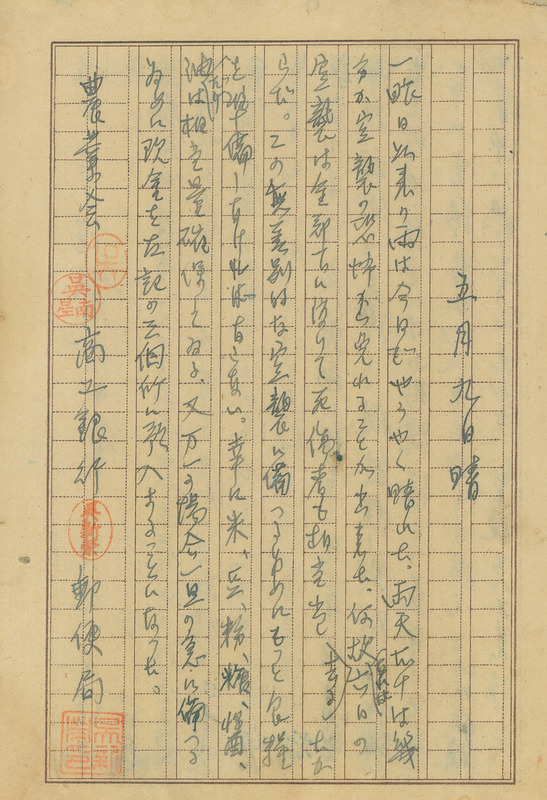 五月九日晴
一昨日以来の雨は今日ぞやうやく晴れた。雨天だけは幾
分か空襲の恐怖を免れることが出来た。何故
六日の
空襲は全部市に渡りて死傷者も相当
らだ。この無差別的な空襲に備へるためにもつと食糧
を準備しなければならない。幸に米、豆、粉、糖、醬、
油は相当量確保してゐる、又万一の場合一旦の急に備へる
ために現金を左記の三個所に預入することになつた。
農業会 商工銀行 郵便局
呉新栄